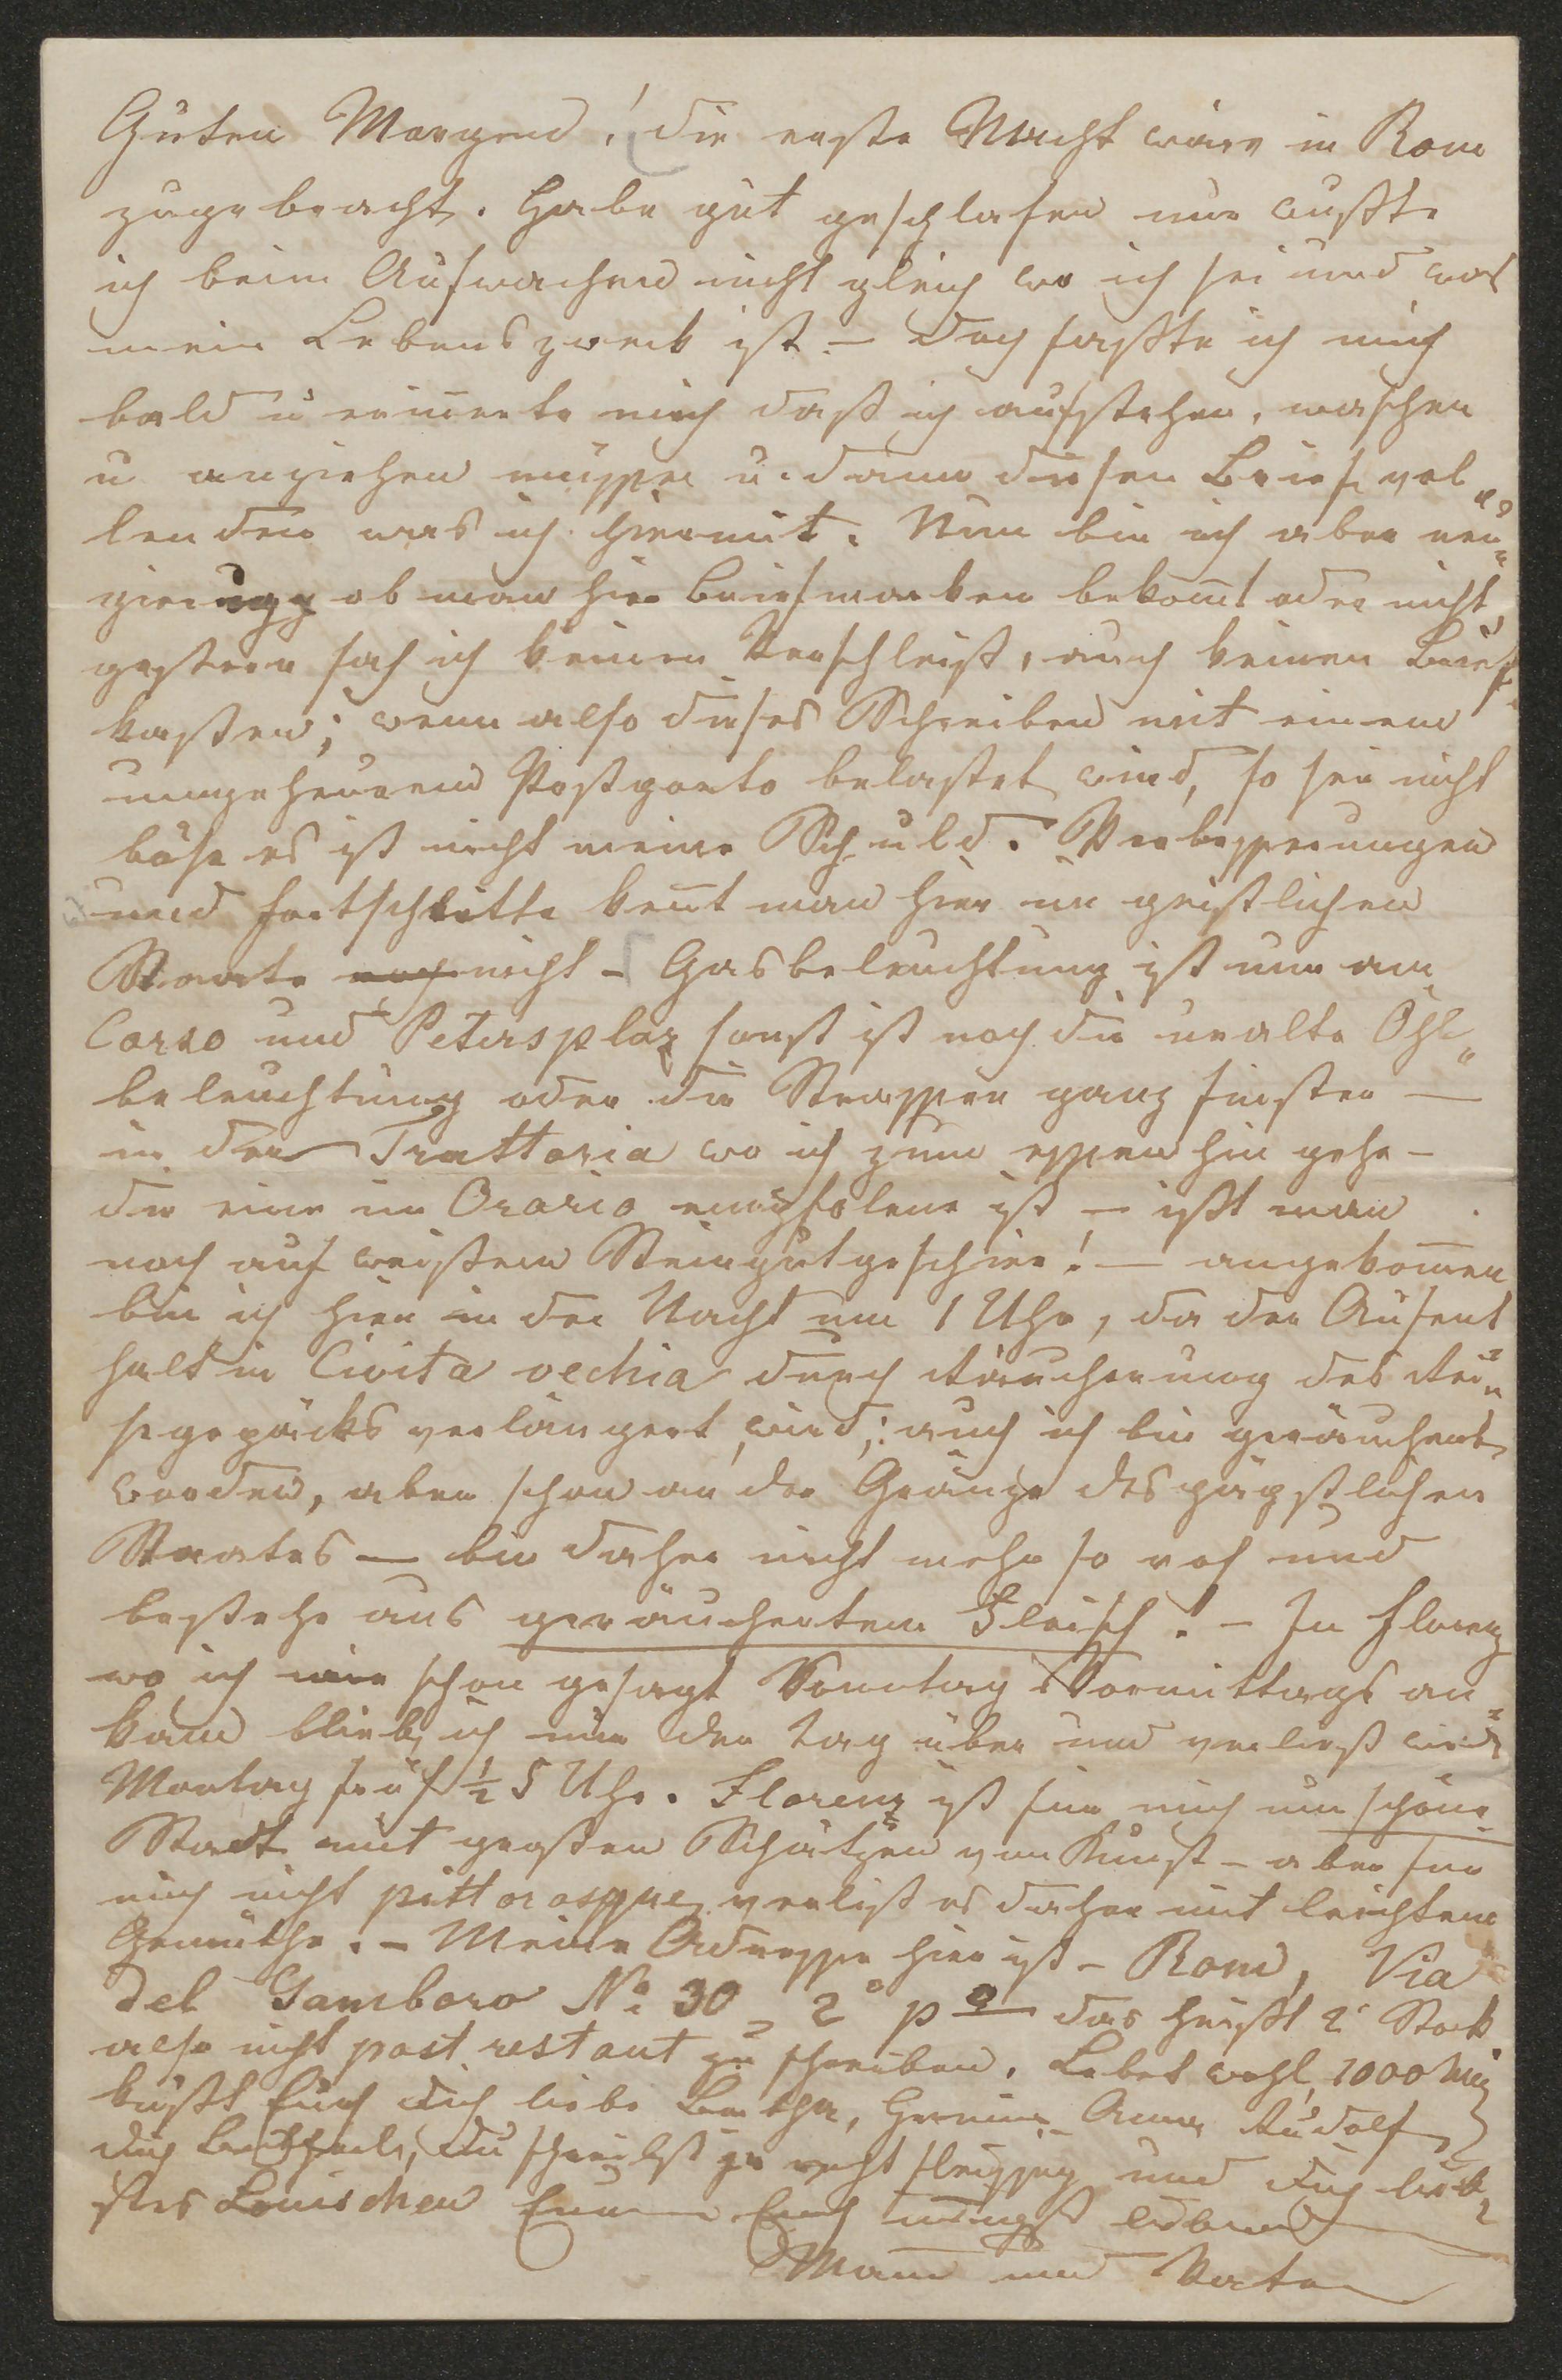 Guten Morgen! die erste Nacht wäre in Rom
zugebracht. Habe gut geschlafen nur wußte
ich beim Aufwachen nicht gleich wo ich sei und was
mein Lebenszweck ist – doch faßte ich mich
bald u erinnerte mich daß ich aufstehen, waschen
u anziehen müsse u. dann diesen Brief vol„
lenden was ich hiermit. Nun bin ich aber neu„
gierig ob man hier Briefmarken bekomt oder nicht,
gestern sah ich keinen Verschleiß, auch keinen Brief
kasten; wenn also dieses Schreiben mit einem
ungeheuren Postporto belastet wird, so sei nicht
böse es ist nicht meine Schuld. Verbesserungen
und Fortschritte kent man hier im geistlichen
Staate noch nicht – Gasbeleuchtung ist nur am
Corso und Petersplaz sonst ist noch die uralte Öhl„
beleuchtung oder die Strassen ganz finster –
in der Trattoria wo ich zum essen hin gehe –
die eine im Orario empfolene ist – ißt man
noch auf weißem Steingutgeschirr! – angekomen
bin ich hier in der Nacht um 1 Uhr, da der Aufent
halt in Civita vechia durch Räucherung des Rei„
segepäcks verlängert wird; auch ich bin geräuchert
worden, aber schon an der Gränze des päpstlichen
Staates – bin daher nicht mehr so roh und
bestehe aus geräuchertem Fleisch! – In Florenz
wo ich wie schon gesagt Sonntag Vormittags an„
kam blieb ich nur den Tag über und verließ es
Montag früh ½ 5 Uhr. Florenz ist für mich nur schöne
Stadt mit großen Schätzen von Kunst – aber für
mich nicht pittoresque verließ es daher mit leichtem
Gemüthe. – Meine Adresse hier ist – Rom, Via
del Gambero No 30 2° po das heißt 2t Stock
also nicht post restant zu schreiben. Lebet wohl, 1000 mal
küßt Euch dich liebe Bertha, Hermine Anna Rudolf
dich du schreibst ja recht fleissig und dich lieb„
stes Louischen Euer Euch innigst liebender
Mann und Vater